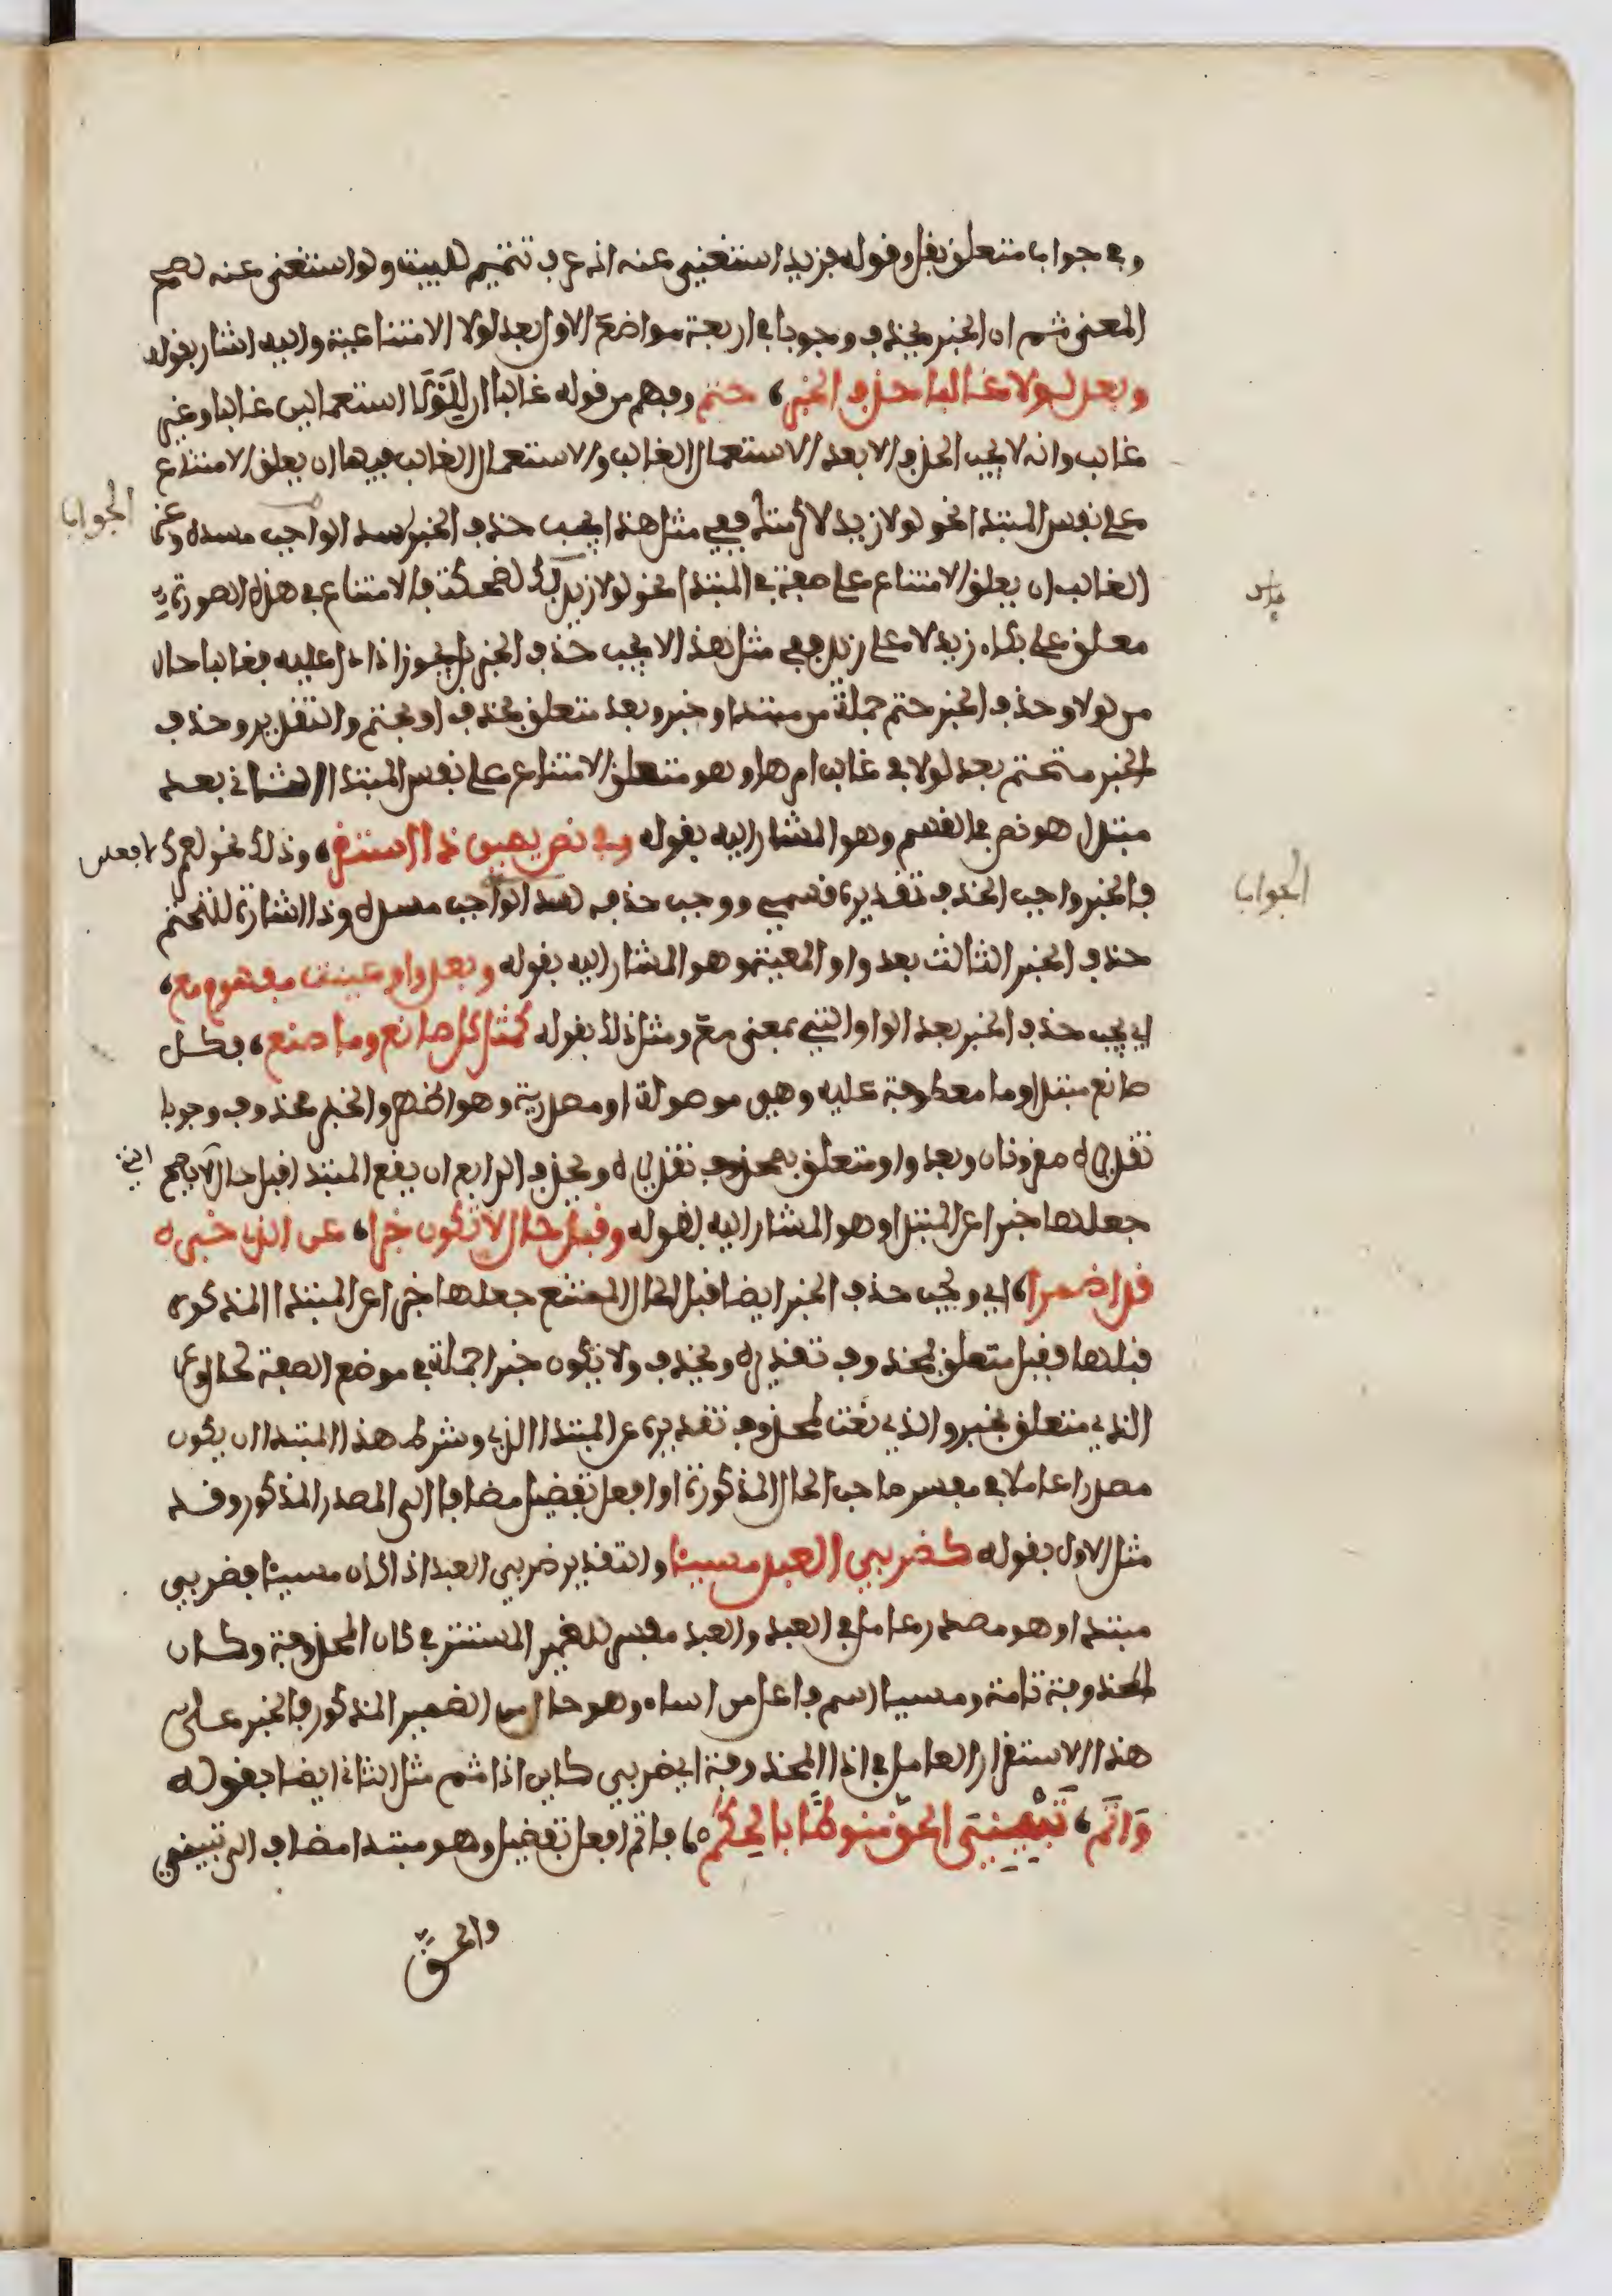 وفي جواب متعلق بقل وقوله فزيد استغني عنه اذ عرف تتميم للبيت ولو استغنى عنه لصح
المعنى ثم ان الخبر يحذف وجوبا في اربعة مواضع الاول بعد لولا الامتناعية واليه اشار بقوله
وبعد لولا غالبا حذف الخبر، حتم وفهم من قوله غالبا ان للولا استعمالين غالبا وغير
غالب وانه لا يجب الحذف الا بعد الاستعمال الغالب والاستعمال الغالب فيها ان يعلق الامتناع
على نفس المبتدا نحو لولا زيد لأكرمتك ففي مثل هذا يجب حذف الخبر لسد الجواب مسده وغير
الغالب ان يعلق الامتناع على صفة في المبتدا نحو لولا زيد باك لضحكت فالامتناع في هذه الصورة
معلق على بكاء زيد لا على زيد ففي مثل هذا لا يجب حذف الخبر بل يجوز اذا دل عليه فغالبا حال
من لولا وحذف الخبر حتم جملة من مبتدا وخبر وبعد متعلق بحذف او بحتم والتقدير وحذف
الخبر متحتم بعد لولا في غالب امرها وهو متعلق الامتناع على نفس المبتدا الثاني بعد
مبتدا هو نص في القسم وهو المشار اليه بقوله وفي نص يمين ذا استقر، وذلك نحو لعمرك لافعلن
فالخبر واجب الحذف تقديره قسمي ووجب حذفه لسد الجواب مسده وذا اشارة للتحتم
حذف الخبر الثالث بعد واو المعية وهو المشار اليه بقوله وبعد واو عينت مفهوم مع،
اي يجب حذف الخبر بعد الواو التي بمعنى مع ومثل ذلك بقوله كمثل كل صانع وما صنع، فكل
صانع مبتدا وما معطوفة عليه وهي موصولة او مصدرية وهو اظهر والخبر محذوف وجوبا
تقديره مقرونان وبعد واو متعلق بمحذوف تقديره ويحذف الرابع ان يقع المبتدا قبل حال لا يصح
جعلها خبرا عن المبتدا وهو المشار اليه بقوله وقبل حال لا تكون خبرا، عن الذي خبره
قد اضمرا، اي ويجب حذف الخبر ايضا قبل الحال الممتنع جعلها خبرا عن المبتدا المذكور
قبلها فقبل متعلق بمحذوف تقديره ويحذف ولا تكون خبرا جملة في موضع الصفة لحال وعن
الذي متعلق بخبر والذي نعت لمحذوف تقديره عن المبتدا الذي وشرط هذا المبتدا ان يكون
مصدرا عاملا في مفسر صاحب الحال المذكورة او افعل تفضيل مضافا الى المصدر المذكور وقد
مثل الاول بقوله كضربي العبد مسيئا والتقدير ضربي العبد اذا كان مسيئا فضربي
مبتدا وهو مصدر عامل في العبد والعبد مفسر للضمير المستتر في كان المحذوفة وكان
المحذوفة تامة ومسيئا اسم فاعل من اساء وهو حال من الضمير المذكور فالخبر على
هذا الاستقرار العامل في اذا المحذوفة اي ضربي كاين اذا ثم مثل الثاني ايضا بقوله
وَأتَمّ، تَبْيِينِيَ الحقّ منوطًا بالحِكَمْ، فاتم افعل تفضيل وهو مبتدا مضاف الى تبييني
والحق
الجواب
الجواب